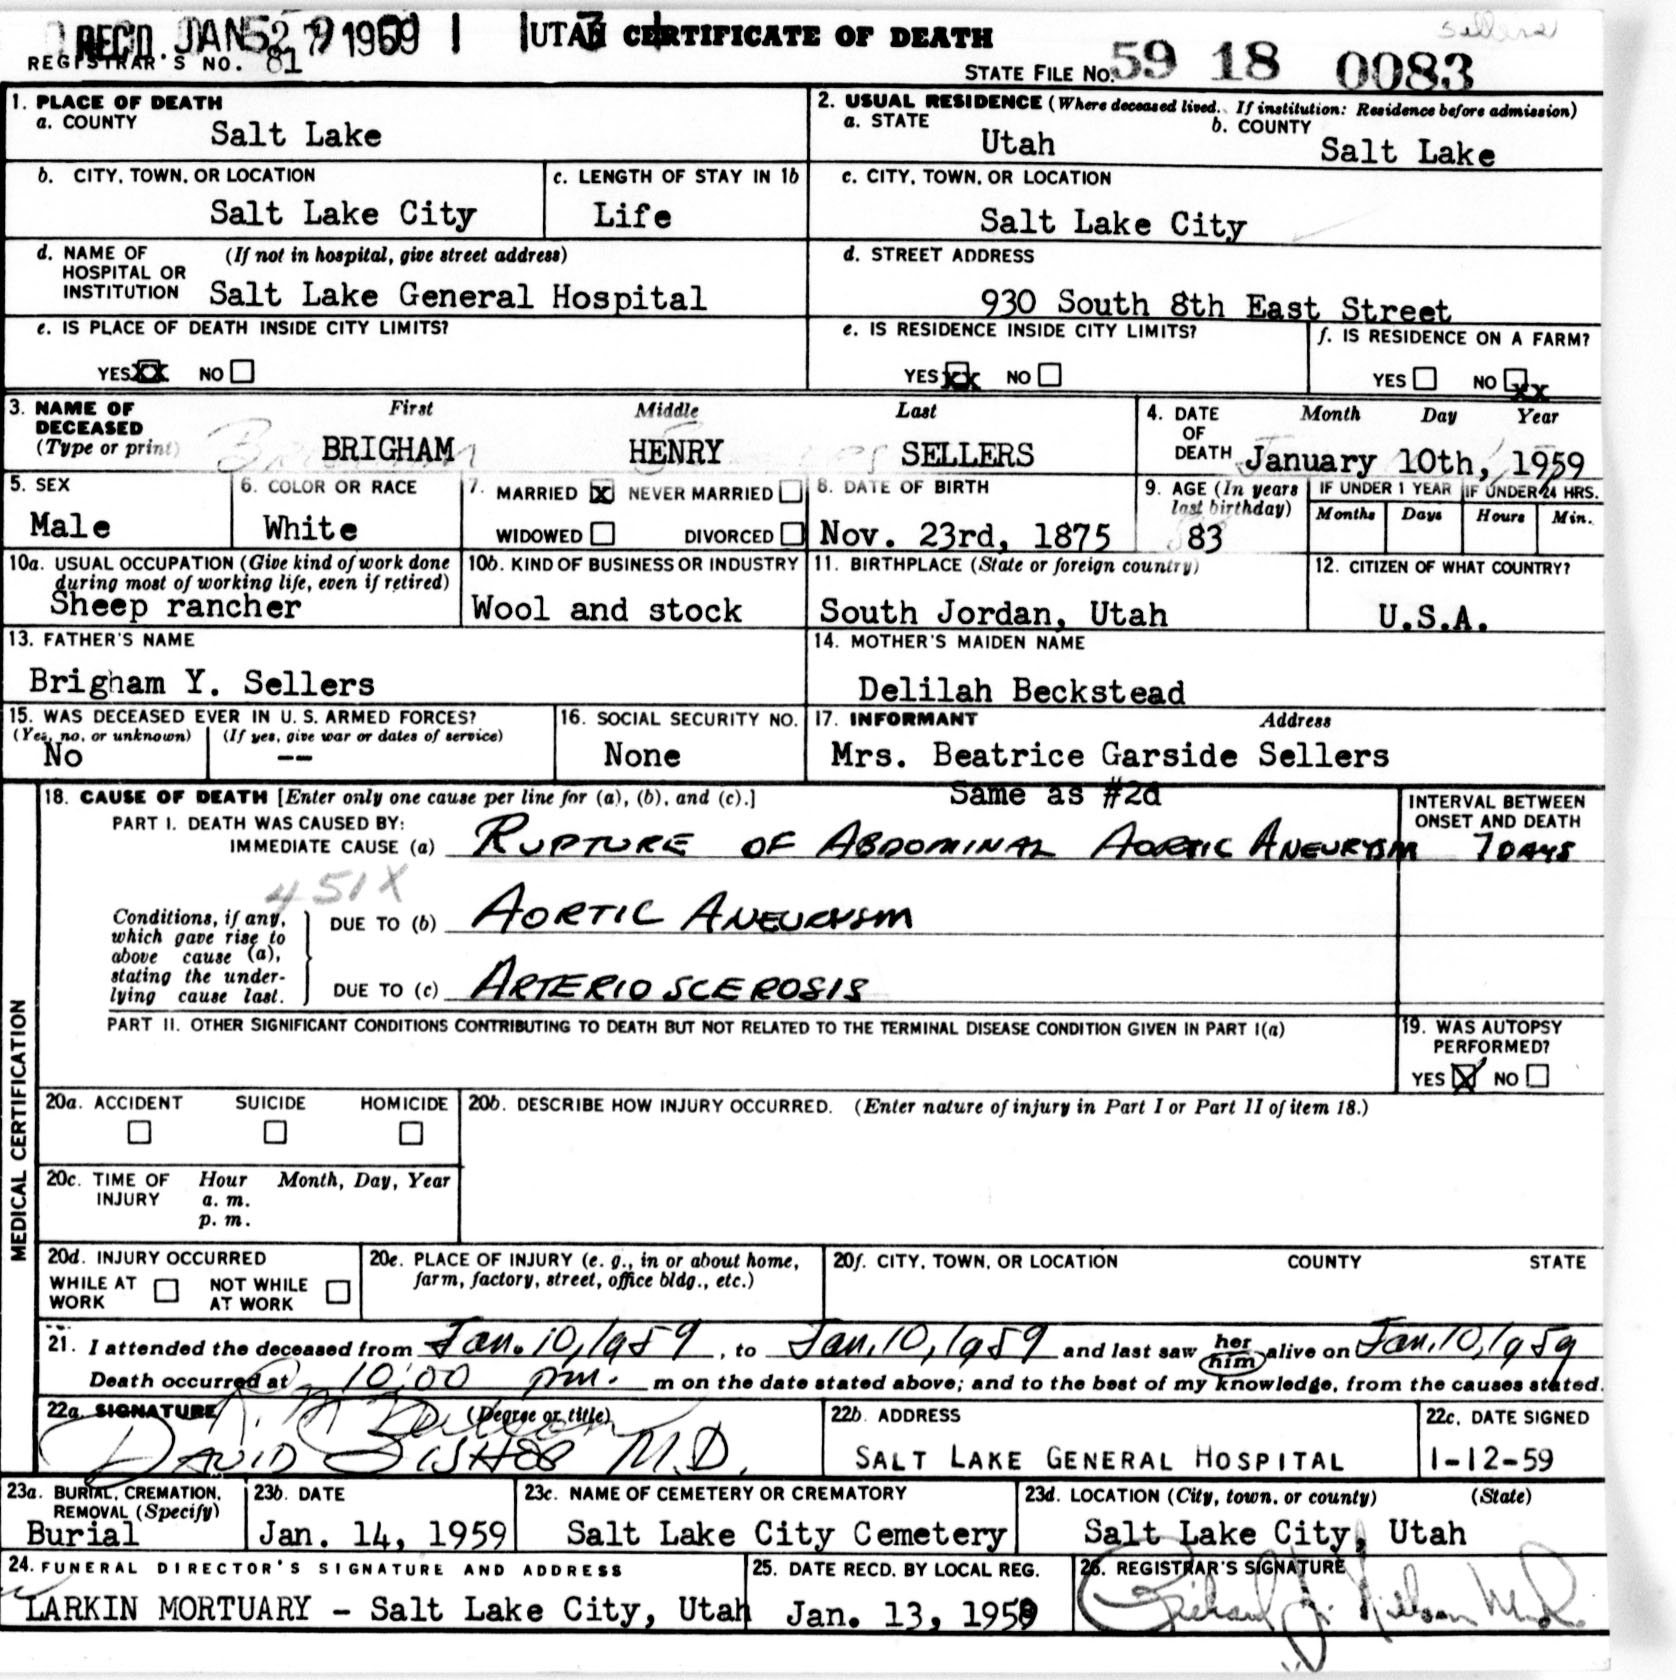 REC'D JAN 1959 UTAH CERTIFICATE OF DEATH
Sellers
REGISTRAR'S NO. 81
STATE FILE NO. 59 18 0083
1. PLACE OF DEATH
a. COUNTY Salt Lake
2. USUAL RESIDENCE (Where deceased lived. If institution: Residence before admission)
a. STATE Utah b. COUNTY Salt Lake
b. CITY, TOWN, OR LOCATION Salt Lake City
c. LENGTH OF STAY IN 1b Life
c. CITY, TOWN, OR LOCATION Salt Lake City
d. NAME OF HOSPITAL OR INSTITUTION (If not in hospital, give street address)
Salt Lake General Hospital
d. STREET ADDRESS
930 South 8th East Street
e. IS PLACE OF DEATH INSIDE CITY LIMITS?
YES XX NO
e. IS RESIDENCE INSIDE CITY LIMITS?
YES XX NO
f. IS RESIDENCE ON A FARM?
YES NO XX
3. NAME OF DECEASED (Type or print)
First Middle Last
BRIGHAM HENRY SELLERS
4. DATE OF DEATH Month Day Year
January 10th, 1959
5. SEX Male
6. COLOR OR RACE White
7. MARRIED X NEVER MARRIED
WIDOWED DIVORCED
8. DATE OF BIRTH Nov. 23rd, 1875
9. AGE (In years last birthday) 83
IF UNDER 1 YEAR Months Days
IF UNDER 24 HRS. Hours Min.
10a. USUAL OCCUPATION (Give kind of work done during most of working life, even if retired)
Sheep rancher
10b. KIND OF BUSINESS OR INDUSTRY
Wool and stock
11. BIRTHPLACE (State or foreign country)
South Jordan, Utah
12. CITIZEN OF WHAT COUNTRY?
U.S.A.
13. FATHER'S NAME
Brigham Y. Sellers
14. MOTHER'S MAIDEN NAME
Delilah Beckstead
15. WAS DECEASED EVER IN U. S. ARMED FORCES?
(Yes, no, or unknown) (If yes, give war or dates of service)
No --
16. SOCIAL SECURITY NO.
None
17. INFORMANT Address
Mrs. Beatrice Garside Sellers
Same as #2d
MEDICAL CERTIFICATION
18. CAUSE OF DEATH [Enter only one cause per line for (a), (b), and (c).]
INTERVAL BETWEEN ONSET AND DEATH
PART I. DEATH WAS CAUSED BY:
IMMEDIATE CAUSE (a) RUPTURE OF ABDOMINAL AORTIC ANEURYSM 7 DAYS
451X
Conditions, if any, which gave rise to above cause (a), stating the underlying cause last.
DUE TO (b) AORTIC ANEURYSM
DUE TO (c) ARTERIO SCEROSIS
PART II. OTHER SIGNIFICANT CONDITIONS CONTRIBUTING TO DEATH BUT NOT RELATED TO THE TERMINAL DISEASE CONDITION GIVEN IN PART I(a)
19. WAS AUTOPSY PERFORMED?
YES X NO
20a. ACCIDENT SUICIDE HOMICIDE
20b. DESCRIBE HOW INJURY OCCURRED. (Enter nature of injury in Part I or Part II of item 18.)
20c. TIME OF INJURY Hour Month, Day, Year
a. m.
p. m.
20d. INJURY OCCURRED
WHILE AT WORK NOT WHILE AT WORK
20e. PLACE OF INJURY (e. g., in or about home, farm, factory, street, office bldg., etc.)
20f. CITY, TOWN, OR LOCATION COUNTY STATE
21. I attended the deceased from Jan. 10, 1959, to Jan. 10, 1959 and last saw her him alive on Jan. 10, 1959
Death occurred at 10:00 pm. m on the date stated above; and to the best of my knowledge, from the causes stated.
22a. SIGNATURE (Degree or title)
DAVID M.D.
22b. ADDRESS
SALT LAKE GENERAL HOSPITAL
22c. DATE SIGNED
1-12-59
23a. BURIAL, CREMATION, REMOVAL (Specify)
Burial
23b. DATE
Jan. 14, 1959
23c. NAME OF CEMETERY OR CREMATORY
Salt Lake City Cemetery
23d. LOCATION (City, town, or county) (State)
Salt Lake City, Utah
24. FUNERAL DIRECTOR'S SIGNATURE AND ADDRESS
LARKIN MORTUARY - Salt Lake City, Utah
25. DATE RECD. BY LOCAL REG.
Jan. 13, 1959
26. REGISTRAR'S SIGNATURE
Richard J. Nelson M.D.